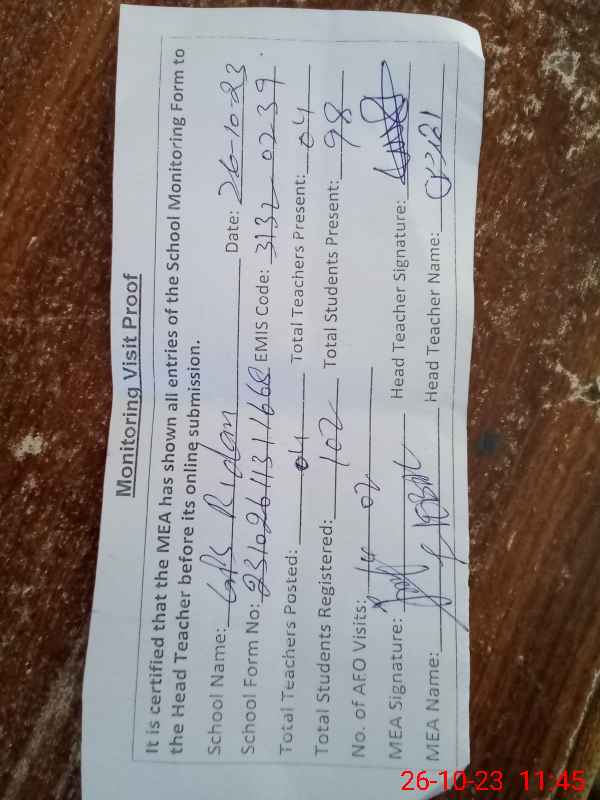 Monitoring Visit Proof
It is certified that the MEA has shown all entries of the School Monitoring Form to
the Head Teacher before its online submission.
School Name: GPS Ridan Date: 26-10-23
School Form No: EMIS Code: 3132-0239
Total Teachers Posted: 04 Total Teachers Present: 04
Total Students Registered: 102 Total Students Present: 98
No. of AEO Visits: 02
MEA Signature: Head Teacher Signature:
MEA Name: Head Teacher Name:
26-10-23 11:45